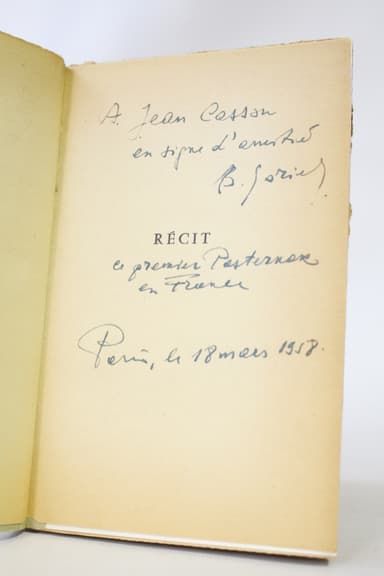 A Jean Cassou
en signe d'amitié
B. Goriely
RÉCIT
ce premier Pasternak
en France
Paris, le 18 mars 1958.